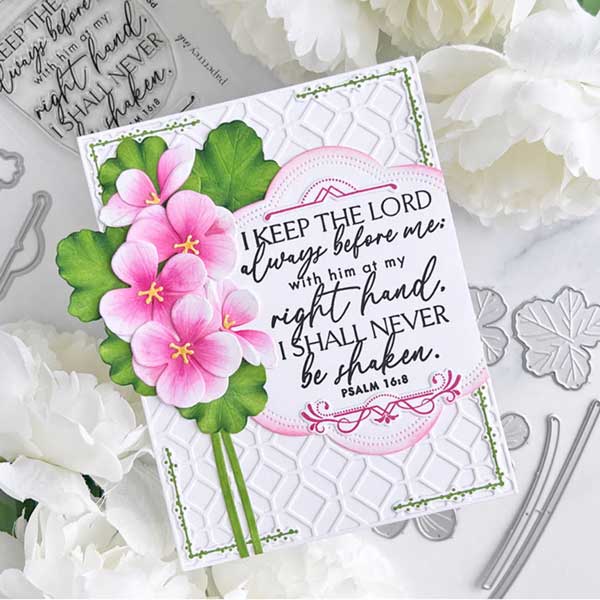 KEEP THE LORD
always before me;
with him at my
right hand,
I SHALL NEVER
be shaken.
PSALM 16:8
papertrey ink
I KEEP THE LORD
always before me;
with him at my
right hand,
I SHALL NEVER
be shaken.
PSALM 16:8